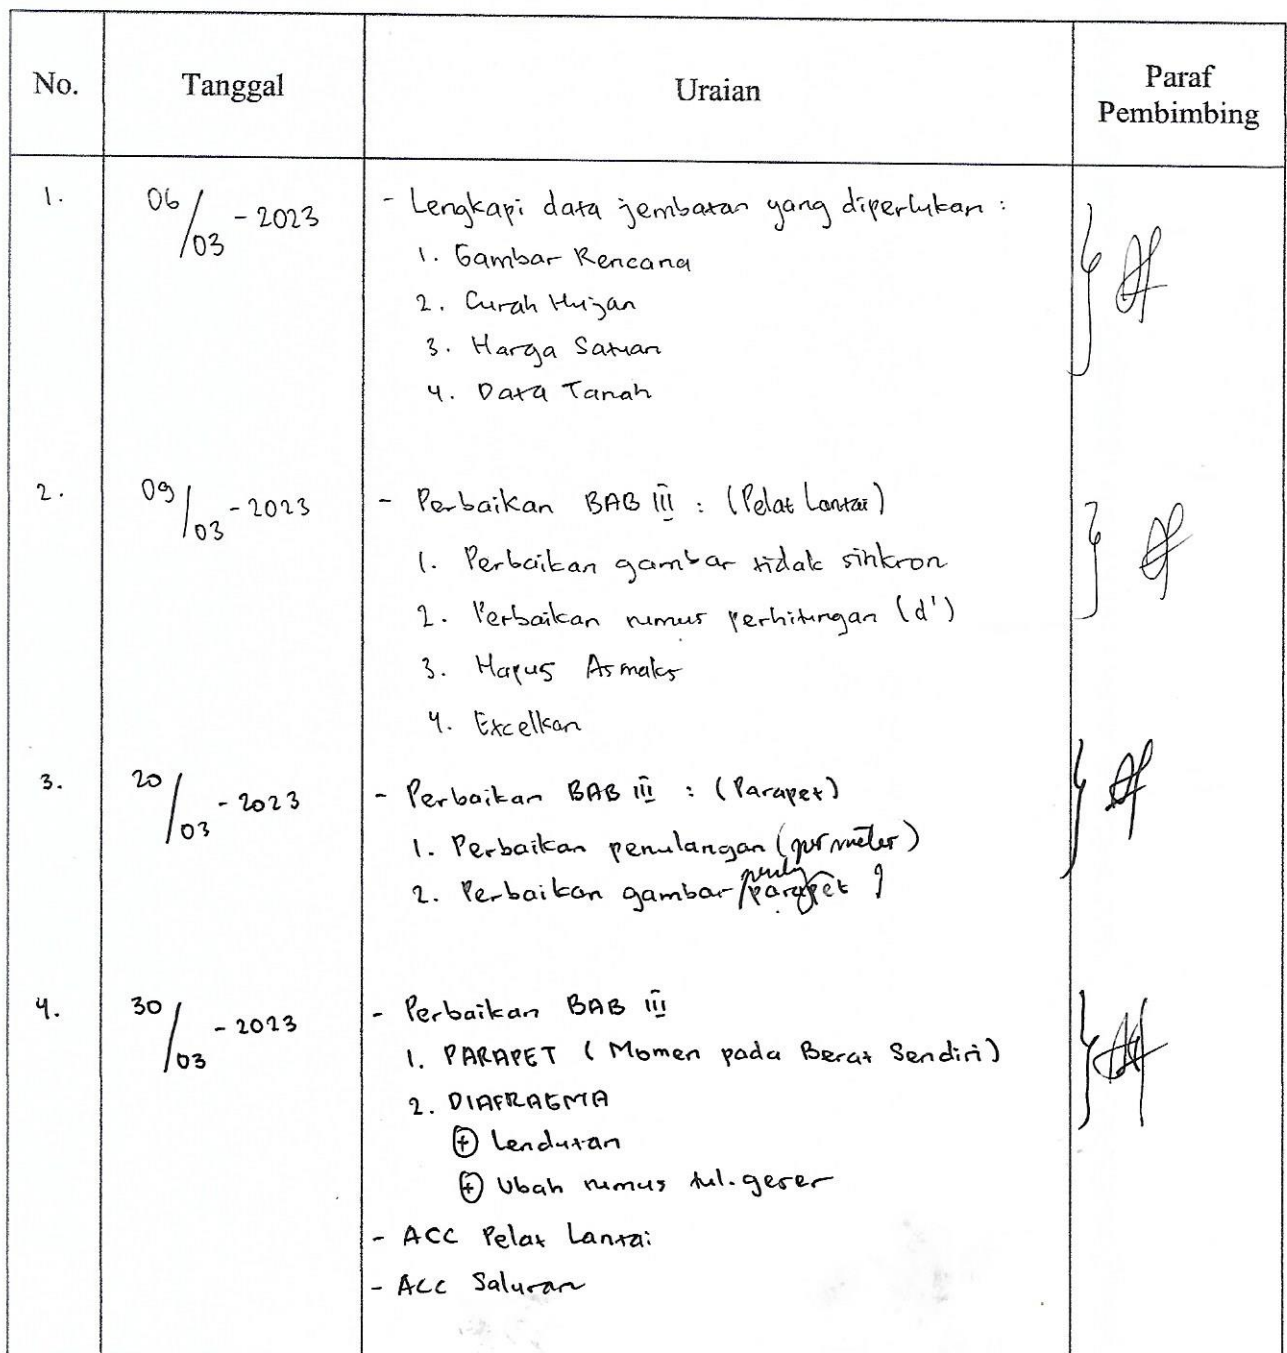 No. Tanggal Uraian Paraf Pembimbing
1. 06/03 - 2023 - Lengkapi data jembatan yang diperlukan :
1. Gambar Rencana
2. Curah Hujan
3. Harga Satuan
4. Data Tanah
2. 09/03 - 2023 - Perbaikan BAB III : (Pelat Lantai)
1. Perbaikan gambar tidak sinkron
2. Perbaikan rumus perhitungan (d')
3. Hapus As maks
4. Excelkan
3. 20/03 - 2023 - Perbaikan BAB III : (Parapet)
1. Perbaikan penulangan (per meter)
2. Perbaikan gambar parapet
4. 30/03 - 2023 - Perbaikan BAB III
1. PARAPET (Momen pada Berat Sendiri)
2. DIAFRAGMA
+ Lendutan
+ Ubah rumus tul. geser
- ACC Pelat Lantai
- ACC Saluran